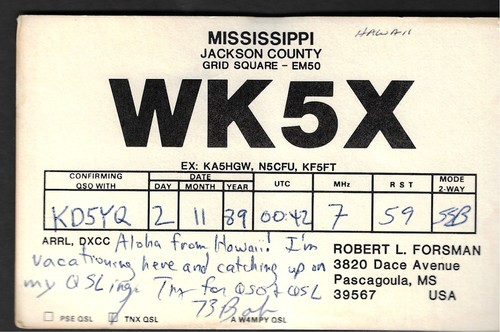 HAWAII
MISSISSIPPI
JACKSON COUNTY
GRID SQUARE - EM50
WK5X
EX: KA5HGW, N5CFU, KF5FT
CONFIRMING QSO WITH DATE DAY MONTH YEAR UTC MHz R S T MODE 2-WAY
KD5YQ 2 11 89 00:42 7 59 SSB
ARRL, DXCC Aloha from Hawaii! I'm
vacationing here and catching up on
my QSLing. Tnx for QSO & QSL
73 Bob
ROBERT L. FORSMAN
3820 Dace Avenue
Pascagoula, MS
39567 USA
PSE QSL TNX QSL A W4MPY QSL